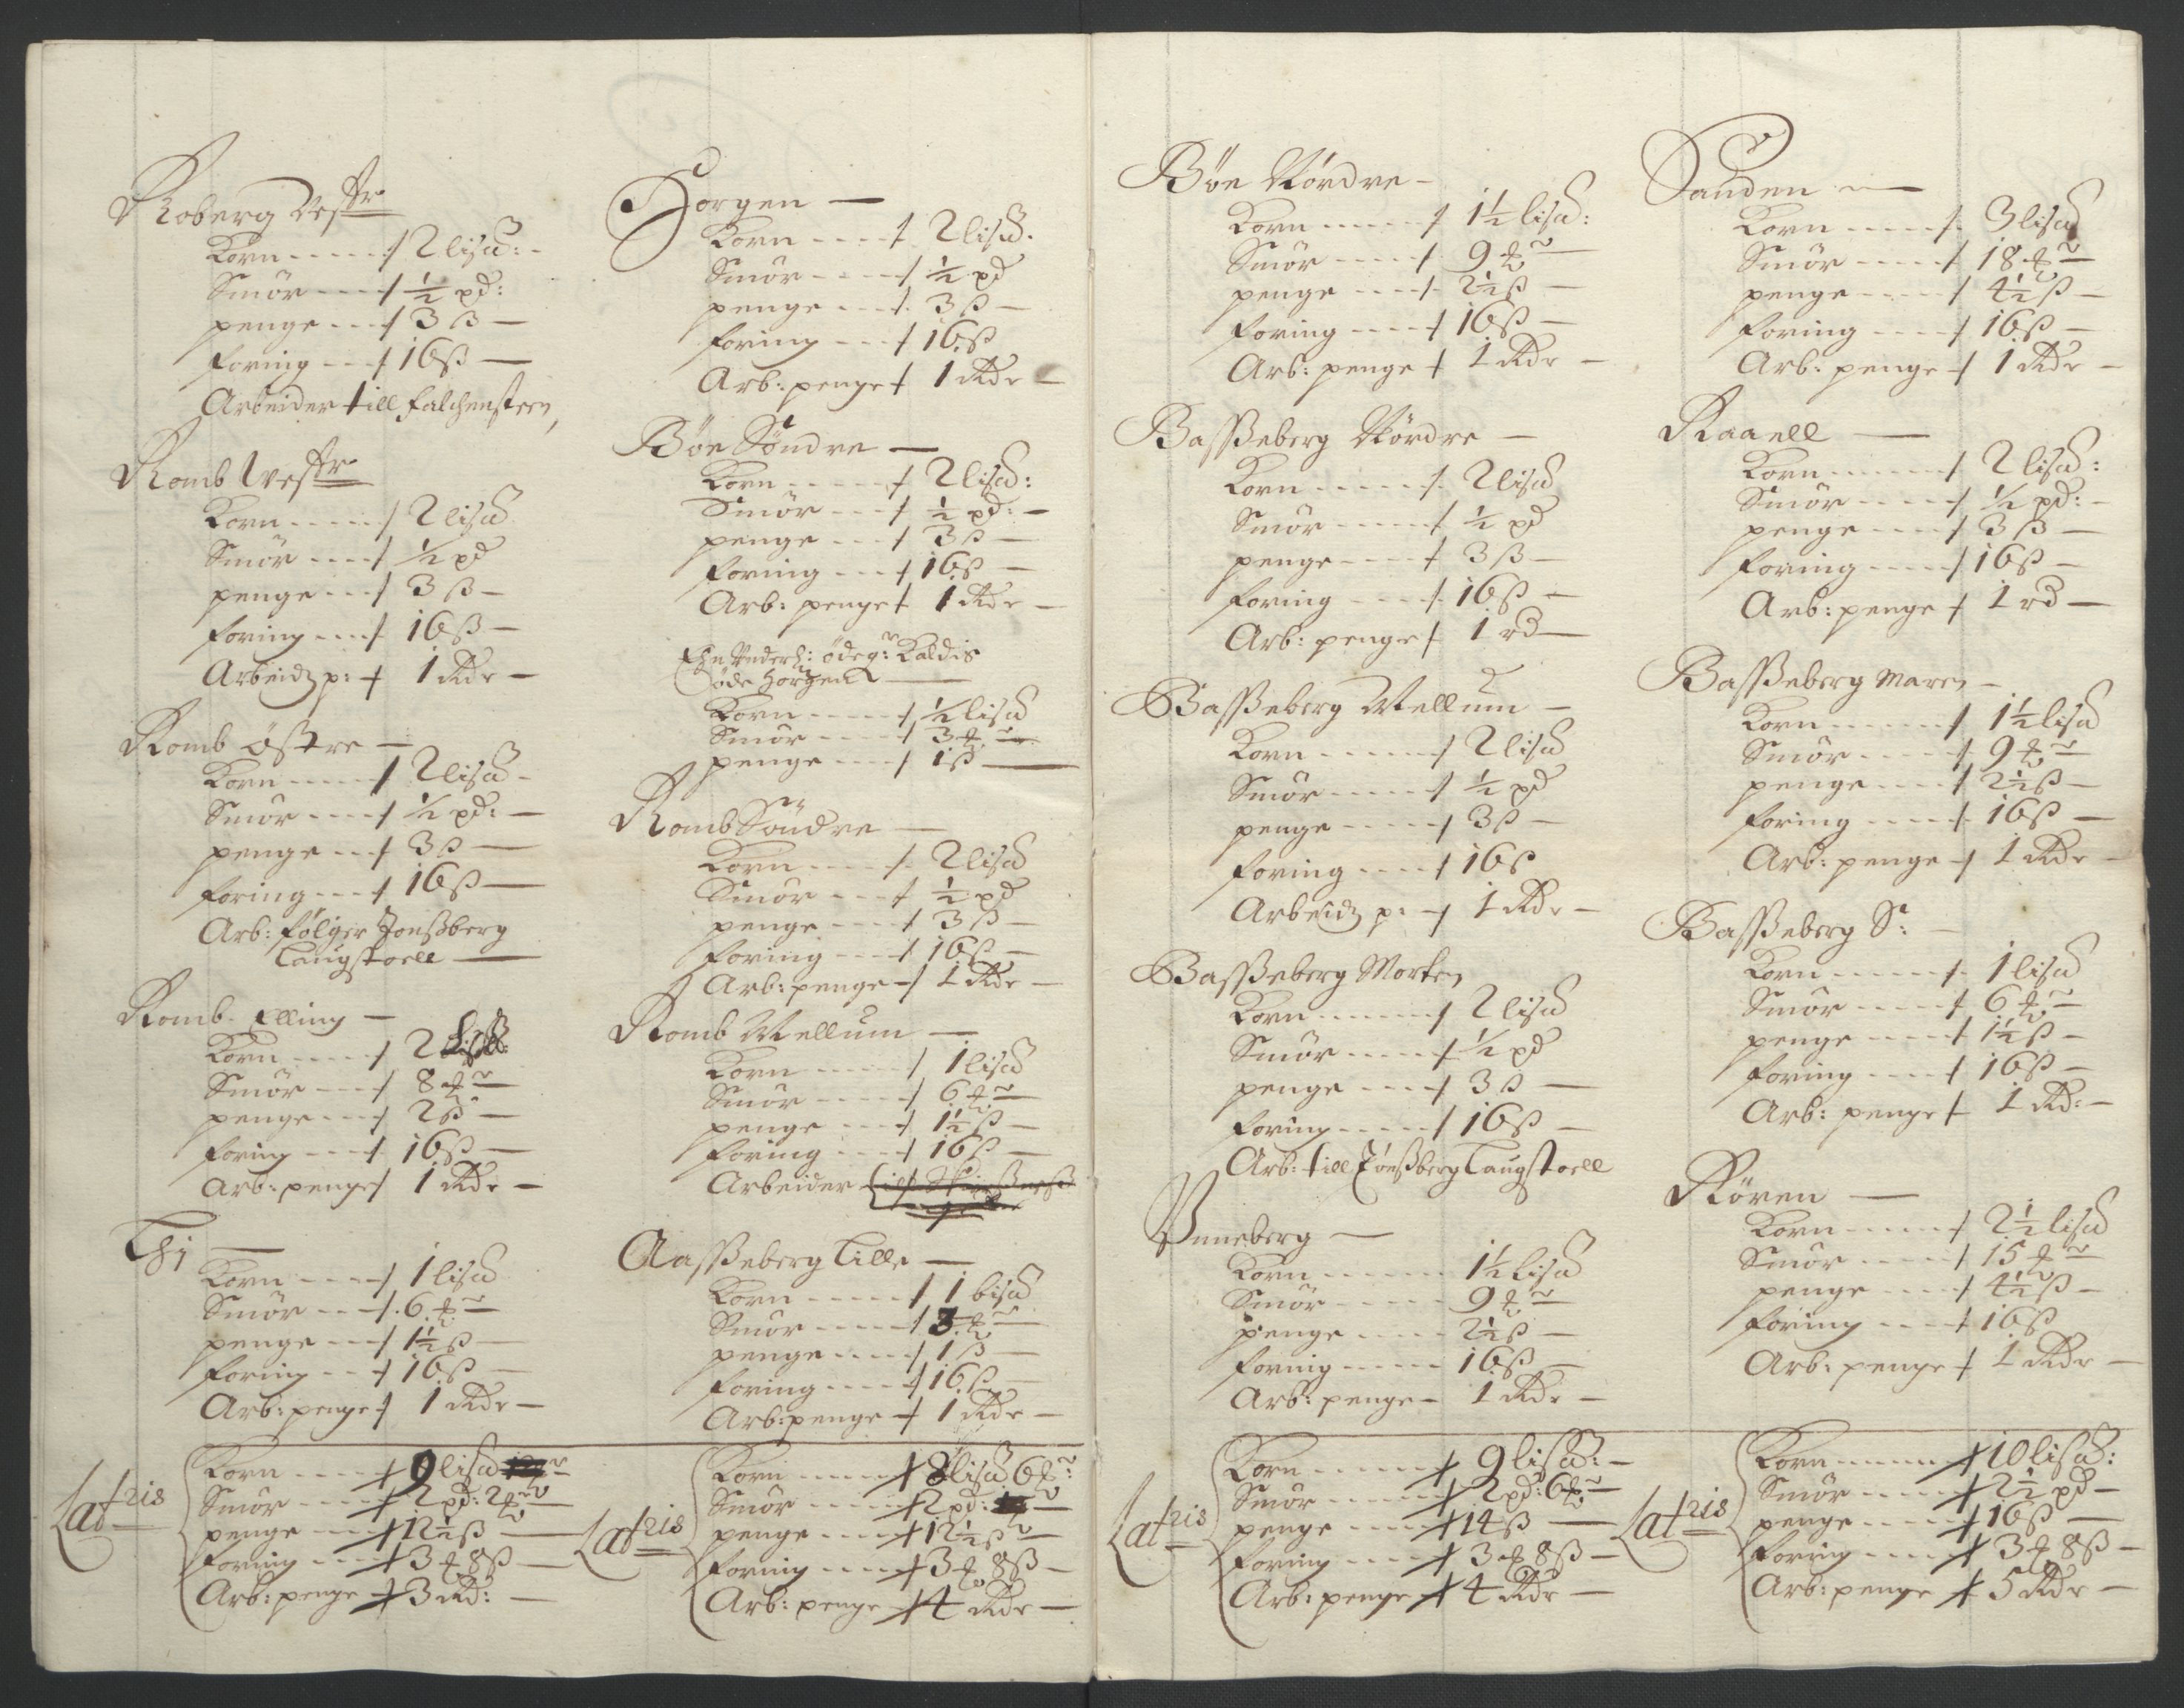 Roberg Vestr
Korn ---- / 2 lisd: -
Smör --- / ½ pd:
penge --- / 3 ß -
foring --- / 16 ß -
Arbeider till falchensteen,
Romb Vestr
Korn ---- / 2 lisd
Smör ---- / ½ pd
penge --- / 3 ß -
foring ---- / 16 ß -
Arbeidz p: / 1 Rdr -
Romb östre -
Korn ---- / 2 lisd -
Smör ---- / ½ pd: -
penge --- / 3 ß -
foring --- / 16 ß -
Arb: fölger Jonßberg
Laugstoell -
Romb. Elling -
Korn ---- / 2
Smör --- / 8 ℔r -
penge --- / 2 ß -
foring --- / 16 ß -
Arb: penge / 1 Rdr -
Thj -
Korn ---- / 1 lisd
Smör --- / 6 ℔r -
penge --- / 1½ ß -
foring --- / 16 ß -
Arb: penge / 1 Rdr -
Latris
Korn ---- / 9 lisd
Smör ---- / 2 pd: 2 ℔r
penge ---- / 12½ ß -
foring ---- / 3 ℔ 8 ß -
Arb: penge / 3 Rd: -
Horgen -
Korn ---- / 2 lisd.
Smör ---- / ½ pd
penge ---- / 3 ß -
foring --- / 16 ß
Arb: penge / 1 Rdr -
Böe Söndre -
Korn ---- / 2 lisd:
Smör --- / ½ pd: -
penge --- / 3 ß -
foring --- / 16 ß -
Arb: penge / 1 Rdr -
Underl: ödeg: Kaldis
öde Horgen -
Korn ---- / ½ lisd
Smör ---- / 3 ℔r -
penge ---- / 1 ß -
Romb Söndre -
Korn ---- / 2 lisd
Smör ---- / ½ pd
penge ---- / 3 ß -
foring ---- / 16 ß -
Arb: penge / 1 Rdr -
Romb Mellum -
Korn ---- / 1 lisd
Smör ---- / 6 ℔r -
penge --- / 1½ ß -
foring ---- / 16 ß -
Arbeider
Aasßeberg Lille -
Korn ---- / 1 bisd
Smör ---- / 3 ℔r -
penge ---- / 1 ß -
foring ---- / 16 ß -
Arb: penge / 1 Rdr -
Latris
Korn ---- / 8 lisd 6 ℔r:
Smör ---- / 2 pd: -
penge ---- / 12½ ß -
foring ---- / 3 ℔ 8 ß -
Arb: penge / 4 Rdr -
Böe Nördre -
Korn ---- / 1½ lisd:
Smör ---- / 9 ℔r -
penge ---- / 2½ ß -
foring ---- / 16 ß -
Arb: penge / 1 Rdr -
Basßeberg Nördre -
Korn ---- / 2 lisd
Smör ---- / ½ pd
penge ---- / 3 ß -
foring ---- / 16 ß -
Arb: penge / 1 rd -
Basßeberg Mellum -
Korn ---- / 2 lisd
Smör ---- / ½ pd
penge ---- / 3 ß -
foring ---- / 16 ß
Arbeidz p: / 1 Rdr -
Basßeberg Morten
Korn ---- / 2 lisd
Smör ---- / ½ pd
penge ---- / 3 ß -
foring ---- / 16 ß -
Arb: till Jönßberg Laugstoell
Unneberg -
Korn ---- 1½ Lisd
Smör ---- 9 ℔r -
penge ---- 2½ ß -
foring ---- 16 ß -
Arb: penge - 1 Rdr -
Latris
Korn ---- / 9 lisd: -
Smör ---- / 2 pd: 6 ℔r -
penge ---- / 14 ß -
foring ---- / 3 ℔ 8 ß -
Arb: penge / 4 Rdr -
Sanden -
Korn ---- / 3 lisd
Smör ---- / 18 ℔r -
penge ---- / 4½ ß -
foring ---- / 16 ß -
Arb: penge / 1 Rdr -
Raaell -
Korn ---- / 2 lisd:
Smör ---- / ½ pd: -
penge ---- / 3 ß -
foring ---- / 16 ß -
Arb: penge / 1 rd -
Basßeberg Maren -
Korn ---- / 1½ lisd
Smör ---- / 9 ℔r -
penge ---- / 2½ ß -
foring ---- / 16 ß -
Arb: penge / 1 Rdr -
Basßeberg Sr: -
Korn ---- / 1 lisd
Smör ---- / 6 ℔r -
penge ---- / 1½ ß -
foring ---- / 16 ß -
Arb: penge / 1 Rd: -
Rören -
Korn ---- / 2½ lisd
Smör ---- / 15 ℔r -
penge ---- / 4½ ß -
foring ---- / 16 ß
Arb: penge / 1 Rdr -
Latris
Korn ---- / 10 lisd:
Smör ---- / 2½ pd -
penge ---- / 16 ß -
foring ---- / 3 ℔ 8 ß -
Arb: penge / 5 Rdr -